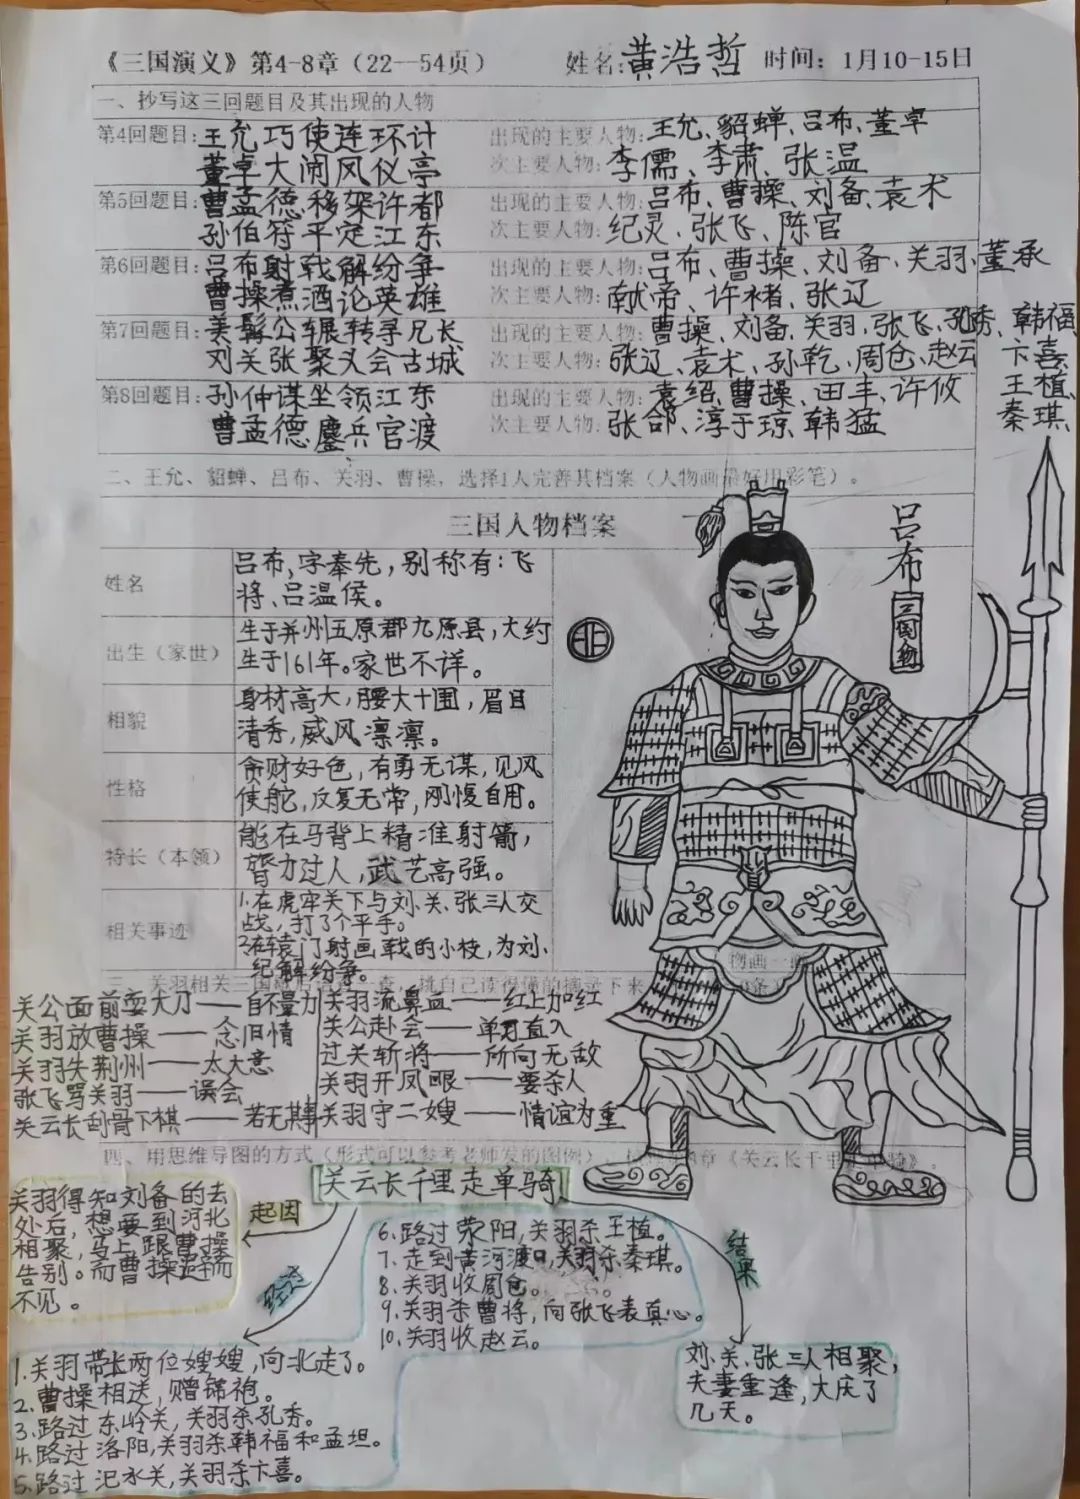 《三国演义》第4-8章（22--54页） 姓名:黄浩哲 时间：1月10-15日
一、抄写这三回题目及其出现的人物
第4回题目:王允巧使连环计 出现的主要人物:王允、貂蝉、吕布、董卓
董卓大闹风仪亭 次主要人物:李儒、李肃、张温
第5回题目:曹孟德移架许都 出现的主要人物:吕布、曹操、刘备、袁术
孙伯符平定江东 次主要人物:纪灵、张飞、陈官
第6回题目:吕布射戟解纷争 出现的主要人物:吕布、曹操、刘备、关羽、董承
曹操煮酒论英雄 次主要人物:献帝、许褚、张辽
第7回题目:美髯公辗转寻兄长 出现的主要人物:曹操、刘备、关羽、张飞、孔秀、韩福
刘关张聚义会古城 次主要人物:张辽、袁术、孙乾、周仓、赵云 卞喜、
王植、
第8回题目:孙仲谋坐领江东 出现的主要人物:袁绍、曹操、田丰、许攸 秦琪、
曹孟德鏖兵官渡 次主要人物:张郃、淳于琼、韩猛
二、王允、貂蝉、吕布、关羽、曹操，选择1人完善其档案（人物画最好用彩笔）。
三国人物档案
吕布
三国人物
姓名
吕布,字奉先，别称有：飞
将、吕温侯。
出生（家世）
生于并州五原郡九原县，大约
生于161年。家世不详。
相貌
身材高大，腰大十围，眉目
清秀，威风凛凛。
性格
贪财好色，有勇无谋，见风
使舵，反复无常，刚愎自用。
特长（本领）
能在马背上精准射箭，
膂力过人，武艺高强。
相关事迹
1.在虎牢关下与刘、关、张三人交
战，打了个平手。
2.在辕门射画戟的小枝，为刘、
纪解纷争。
物画一
三、关羽相关三国歇后语查一查，挑自己读得懂的摘录下来
关公面前耍大刀——自不量力
关羽放曹操——念旧情
关羽失荆州——太大意
张飞骂关羽——误会
关云长刮骨下棋——若无其事
关羽流鼻血——红上加红
关公赴会——单刀直入
过关斩将——所向无敌
关羽开凤眼——要杀人
关羽守二嫂——情谊为重
四、用思维导图的方式（形式可以参考老师发的图例），章《关云长千里走单骑》。
关云长千里走单骑
起因
关羽得知刘备的去
处后，想要到河北
相聚，马上跟曹操
告别。而曹操避而
不见。
经过
1.关羽带上两位嫂嫂，向北走了。
2.曹操相送，赠锦袍。
3.路过东岭关，关羽杀孔秀。
4.路过洛阳，关羽杀韩福和孟坦。
5.路过汜水关，关羽杀卞喜。
6.路过荥阳，关羽杀王植。
7.走到黄河渡口，关羽杀秦琪。
8.关羽收周仓。
9.关羽杀曹将，向张飞表真心。
10.关羽收赵云。
结果
刘、关、张三人相聚，
夫妻重逢，大庆了
几天。